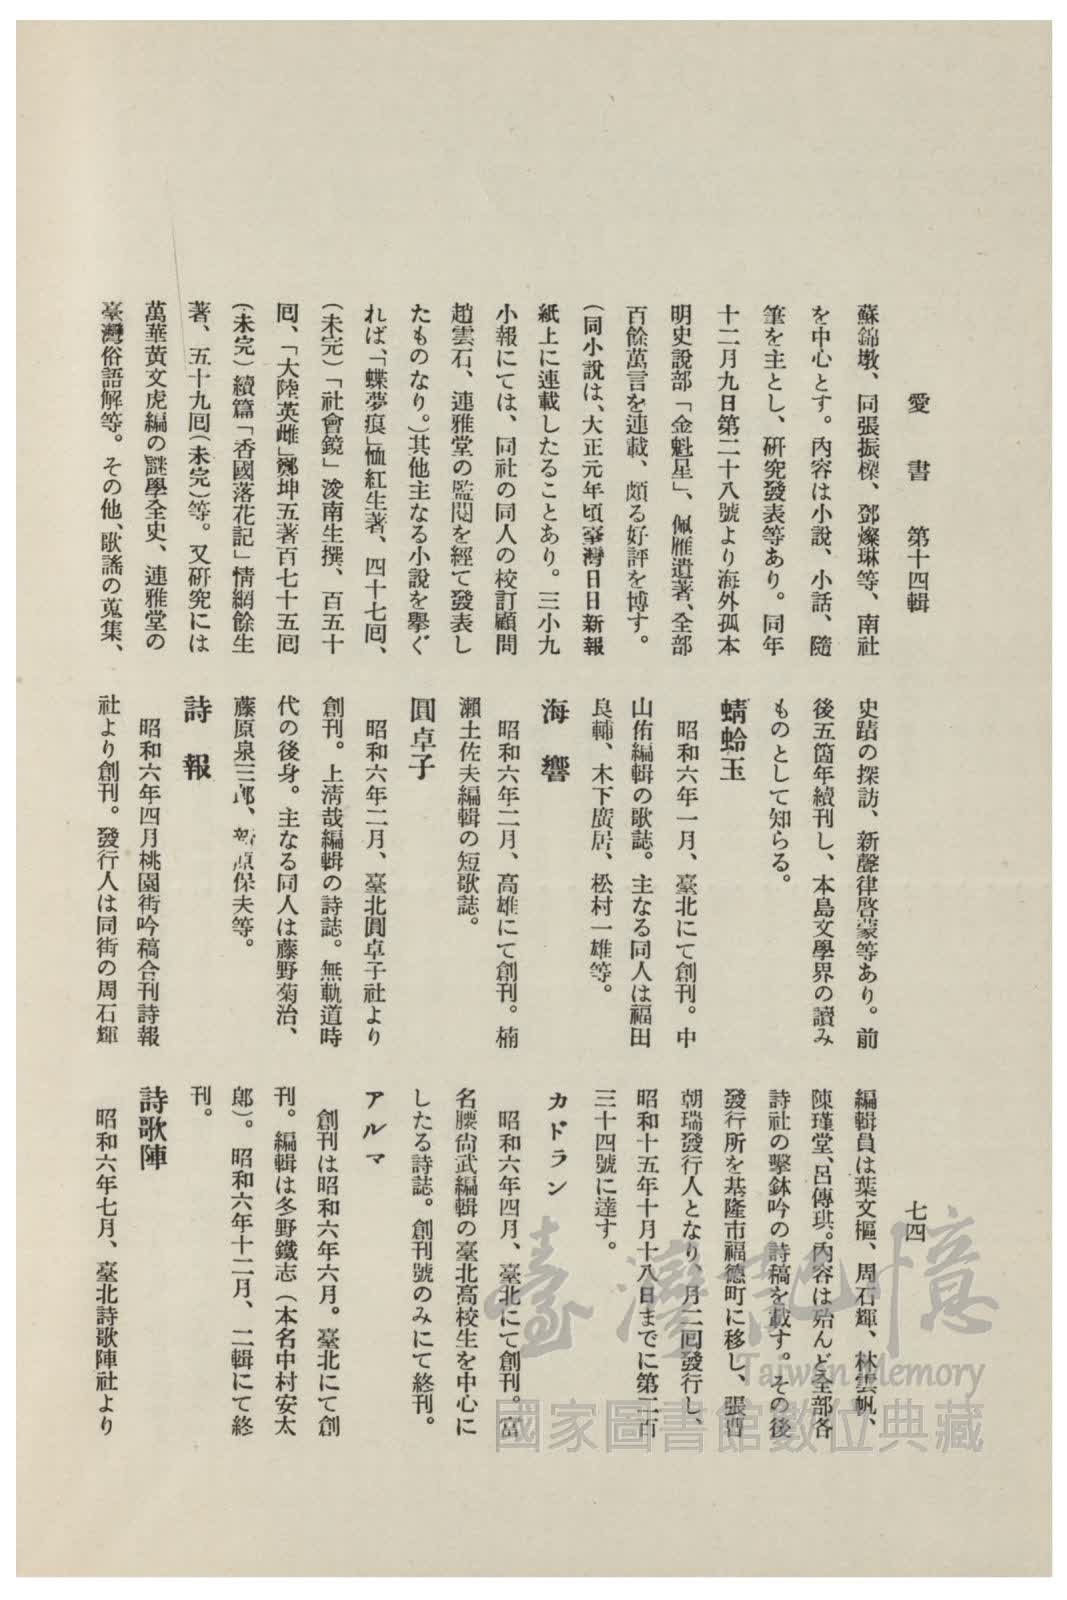 愛書 第十四輯
七四
蘇錦墩、同張振樑、鄧燦琳等、南社
を中心とす。內容は小說、小話、隨
筆を主とし、硏究發表等あり。同年
十二月九日第二十八號より海外孤本
明史說部「金魁星」、佩雁遺著、全部
百餘萬言を連載、頗る好評を博す。
(同小說は、大正元年頃臺灣日日新報
紙上に連載したることあり。三小九
小報にては、同社の同人の校訂顧問
趙雲石、連雅堂の監閱を經て發表し
たものなり。)其他主なる小說を擧ぐ
れば、「蝶夢痕」恤紅生著、四十七囘、
(未完)「社會鏡」浚南生撰、百五十
囘、「大陸英雌」鄭坤五著百七十五囘
(未完)續篇「香國落花記」情網餘生
著、五十九囘(未完)等。又硏究には
萬華黃文虎編の謎學全史、連雅堂の
臺灣俗語解等。その他、歌謠の蒐集、
史蹟の探訪、新聲律啓蒙等あり。前
後五箇年續刊し、本島文學界の讀み
ものとして知らる。
蜻蛉玉
昭和六年一月、臺北にて創刊。中
山侑編輯の歌誌。主なる同人は福田
良輔、木下廣居、松村一雄等。
海響
昭和六年二月、高雄にて創刊。楠
瀨土佐夫編輯の短歌誌。
圓卓子
昭和六年二月、臺北圓卓子社より
創刊。上淸哉編輯の詩誌。無軌道時
代の後身。主なる同人は藤野菊治、
藤原泉三郞、保夫等。
詩報
昭和六年四月桃園街吟稿合刊詩報
社より創刊。發行人は同街の周石輝
編輯員は葉文樞、周石輝、林雲帆、
陳瑾堂、呂傳琪。內容は殆んど全部各
詩社の擊鉢吟の詩稿を載す。その後
發行所を基隆市福德町に移し、張曹
朝瑞發行人となり、月二囘發行し、
昭和十五年十月十八日までに第二百
三十四號に達す。
カドラン
昭和六年四月、臺北にて創刊。富
名腰尙武編輯の臺北高校生を中心に
したる詩誌。創刊號のみにて終刊。
アルマ
創刊は昭和六年六月。臺北にて創
刊。編輯は冬野鐵志(本名中村安太
郞)。昭和六年十二月、二輯にて終
刊。
詩歌陣
昭和六年七月、臺北詩歌陣社より
臺灣記憶
Taiwan Memory
國家圖書館數位典藏